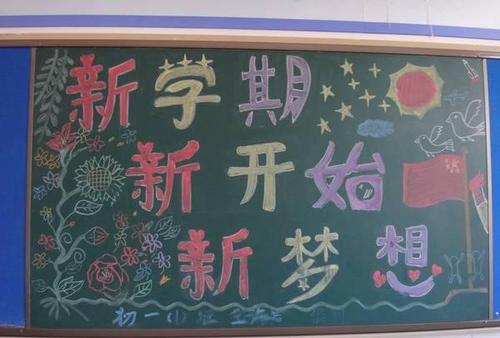 新学期
新开始
新梦想
初一